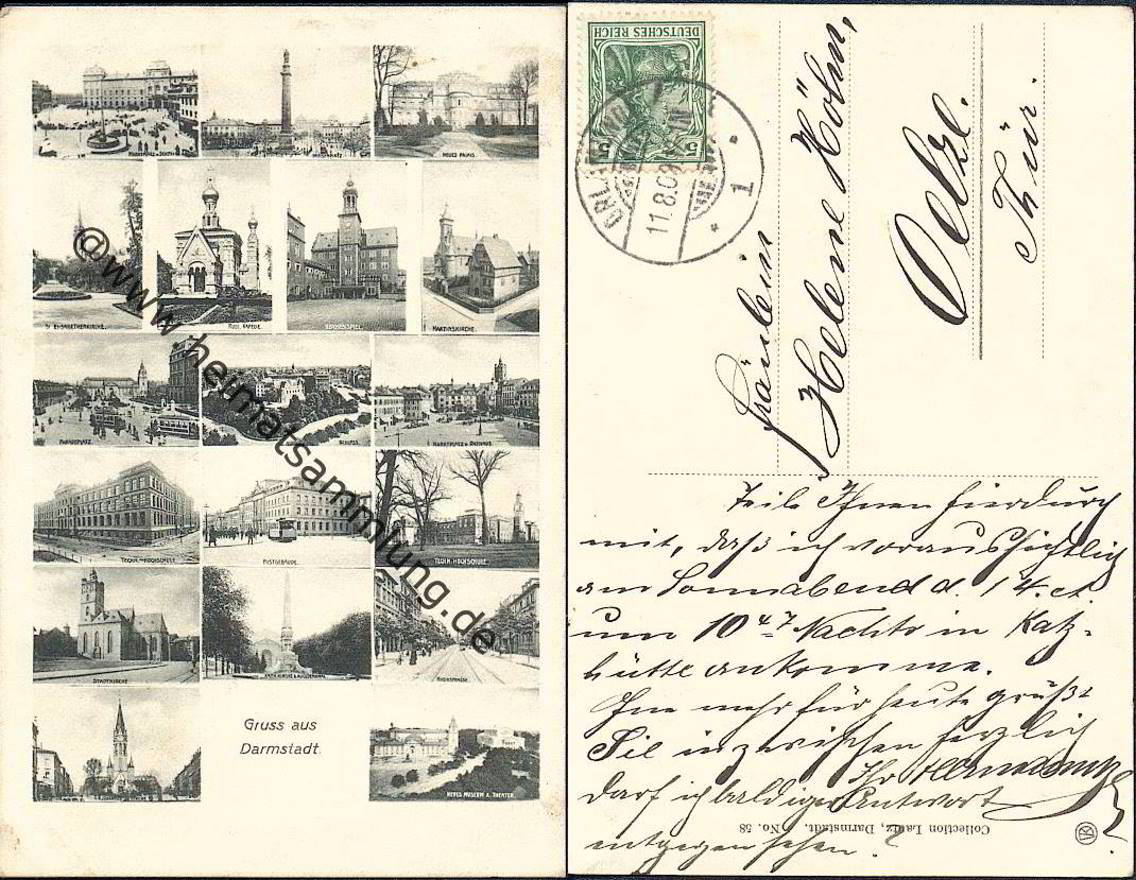 MARKTPLATZ U. SCHLOSS
NEUES PALAIS.
ST ELISABETHENKIRCHE.
RUSS. KAPELLE.
GLOCKENSPIEL.
MARTINSKIRCHE.
PARADEPLATZ.
SCHLOSS.
MARKTPLATZ U. RATHAUS.
TECHN. HOCHSCHULE.
POSTGEBÄUDE.
TECHN. HOCHSCHULE.
STADTKIRCHE
RHEINSTRASSE
Gruss aus
Darmstadt.
NEUES MUSEUM U. THEATER.
@www.heimatsammlung.de
DEUTSCHES REICH
5 5
11.8.09
1
Fräulein
Helene Höhn,
Oelze.
Thür.
Teile Ihnen hierdurch
mit, daß ich voraussichtlich
am Sonnabend d. 14. ct
um 10 47 Nachts in Katz-
hütte ankomme.
mehr für heute grüßt
Sie inzwischen herzlich
Ihr
darf ich baldiger Antwort
entgegen sehen?
Collection Lautz, Darmstadt. No. 58